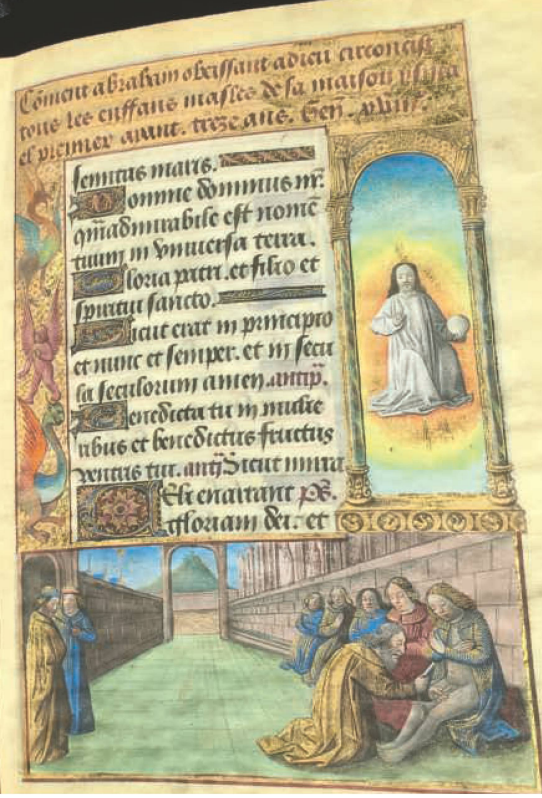 Coment abraham obeissant a dieu circoncist
tous les enffans masles de sa maison
et premier apant. treze ans. Gen. xviii.
semitas maris.
Domine dominus nr.
qmadmirabile est nome
tuum in vniuersa terra.
Gloria patri. et filio et
spiritui sancto.
Sicut erat in principio
et nunc et semper. et in secu
la seculorum amen. antip.
Benedicta tu in mulie
ribus et benedictus fructus
ventris tui. anty Sicut mirra
Celi enarrant ps.
gloriam dei. et